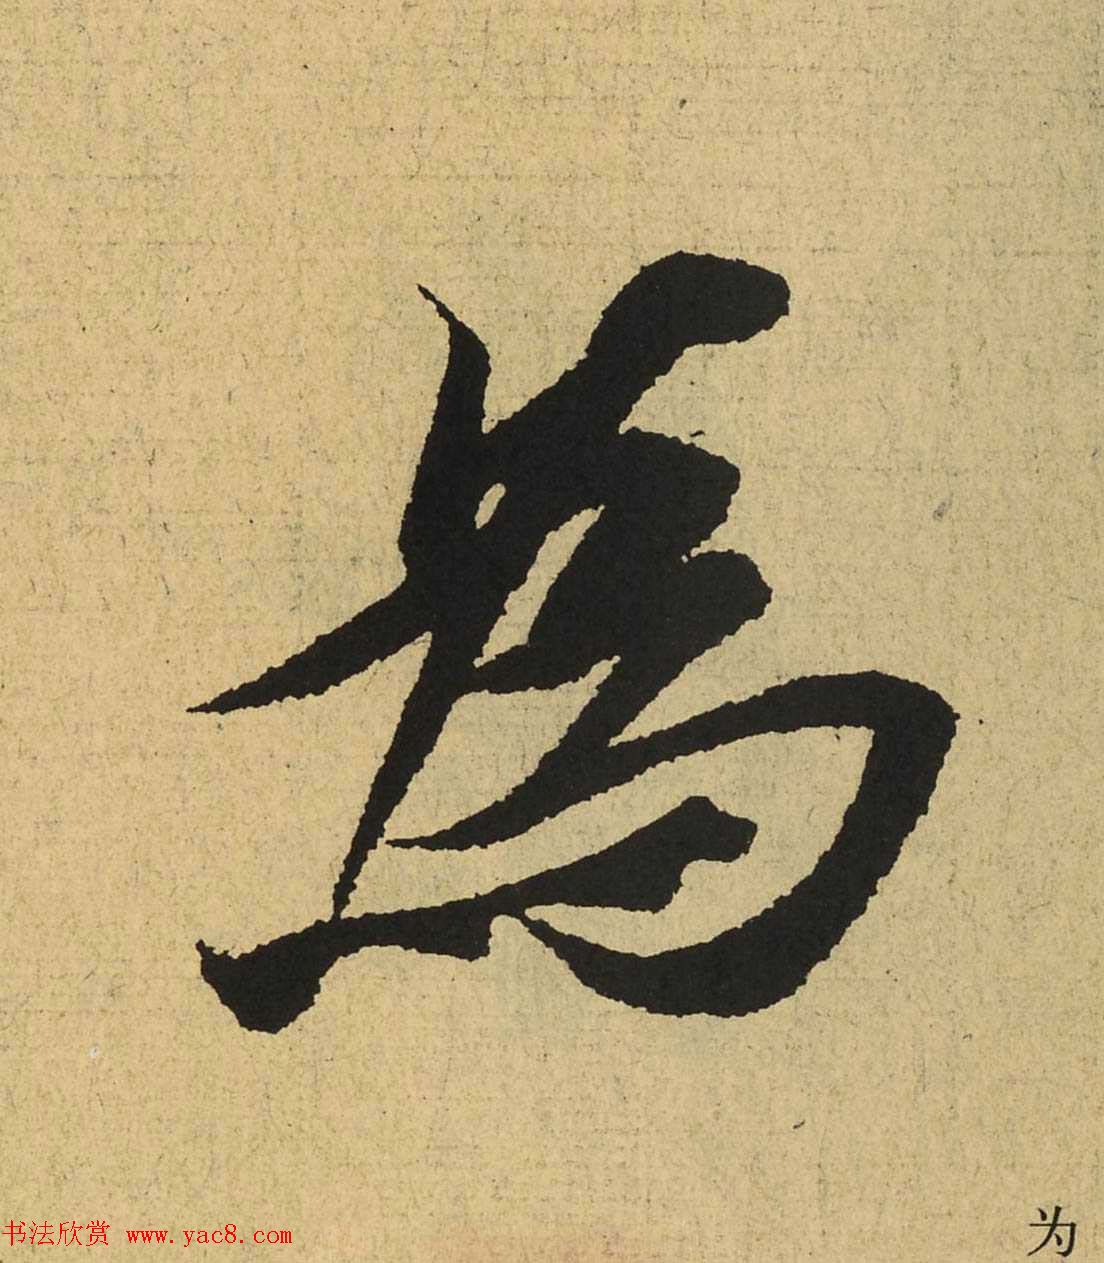 為
书法欣赏 www.yac8.com
为